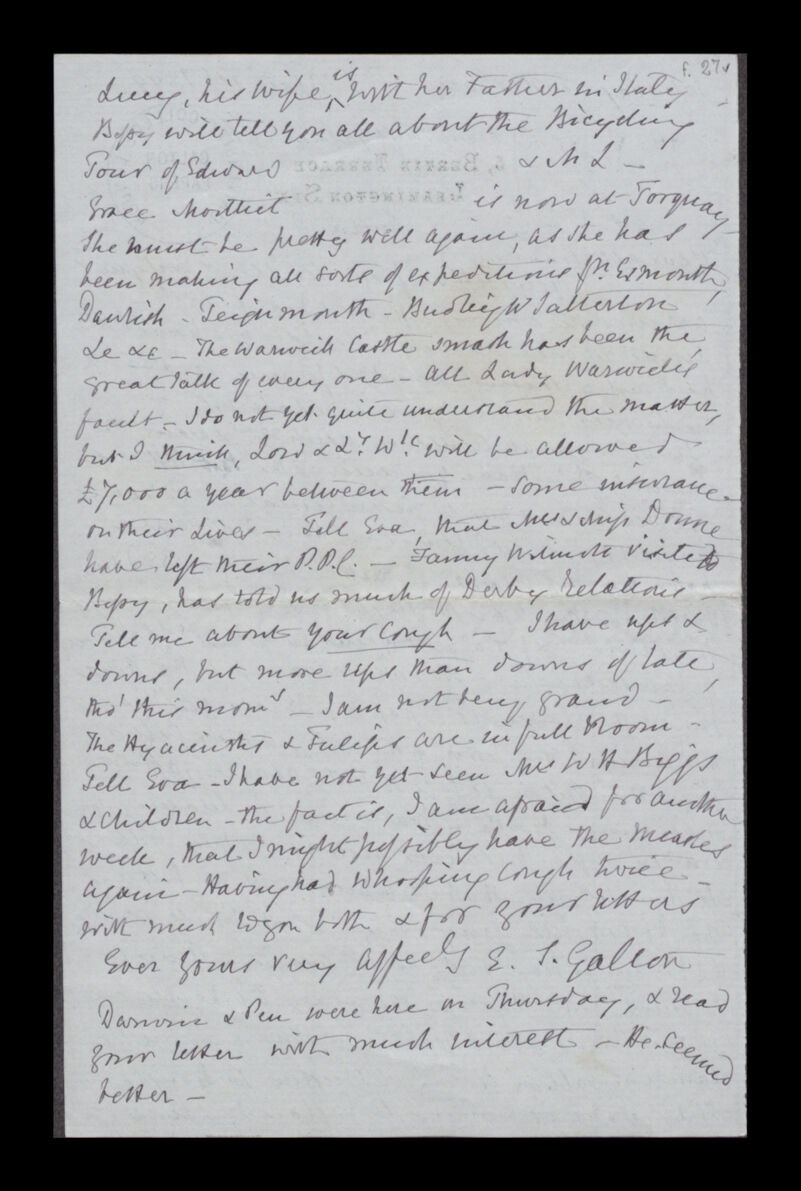 f. 27v
Lucy, his wife, is with her Father in Italy -
Bessy will tell you all about the Bicycling
Tour of Edward & M L -
Grace Moilliet is now at Torquay -
She must be pretty well again, as she has
been making all sorts of expeditions fm Exmouth,
Dawlish - Teignmouth - Budleigh Salterton
&c &c - The Warwick Castle smash has been the
great talk of every one - all Lady Warwick's
fault - I do not yet quite understand the matter,
but I think, Lord & Ly Wk will be allowed
£7,000 a year between them - some insurance -
on their Lives - Tell Eva, that Mrs & Miss Donne
have left their P.P.C. - Fanny Wilmot visited
Bessy, has told us much of Derby Relations -
Tell me about your Cough - I have ups &
downs, but more ups than downs of late,
tho' this morng - I am not very grand -
The Hyacinths & Tulips are in full Bloom -
Tell Eva - I have not yet seen Mrs W H Biggs
& children - the fact is, I am afraid for another
week, that I might possibly have the Measles
again - Having had Whooping Cough twice -
with much love to you both & for your letters
Ever yours very affecly E. S. Galton
Darwin & Pen were here on Thursday, & read
your letter with much interest - He seemed
better -
5, BERTIE TERRACE
LEAMINGTON SPA